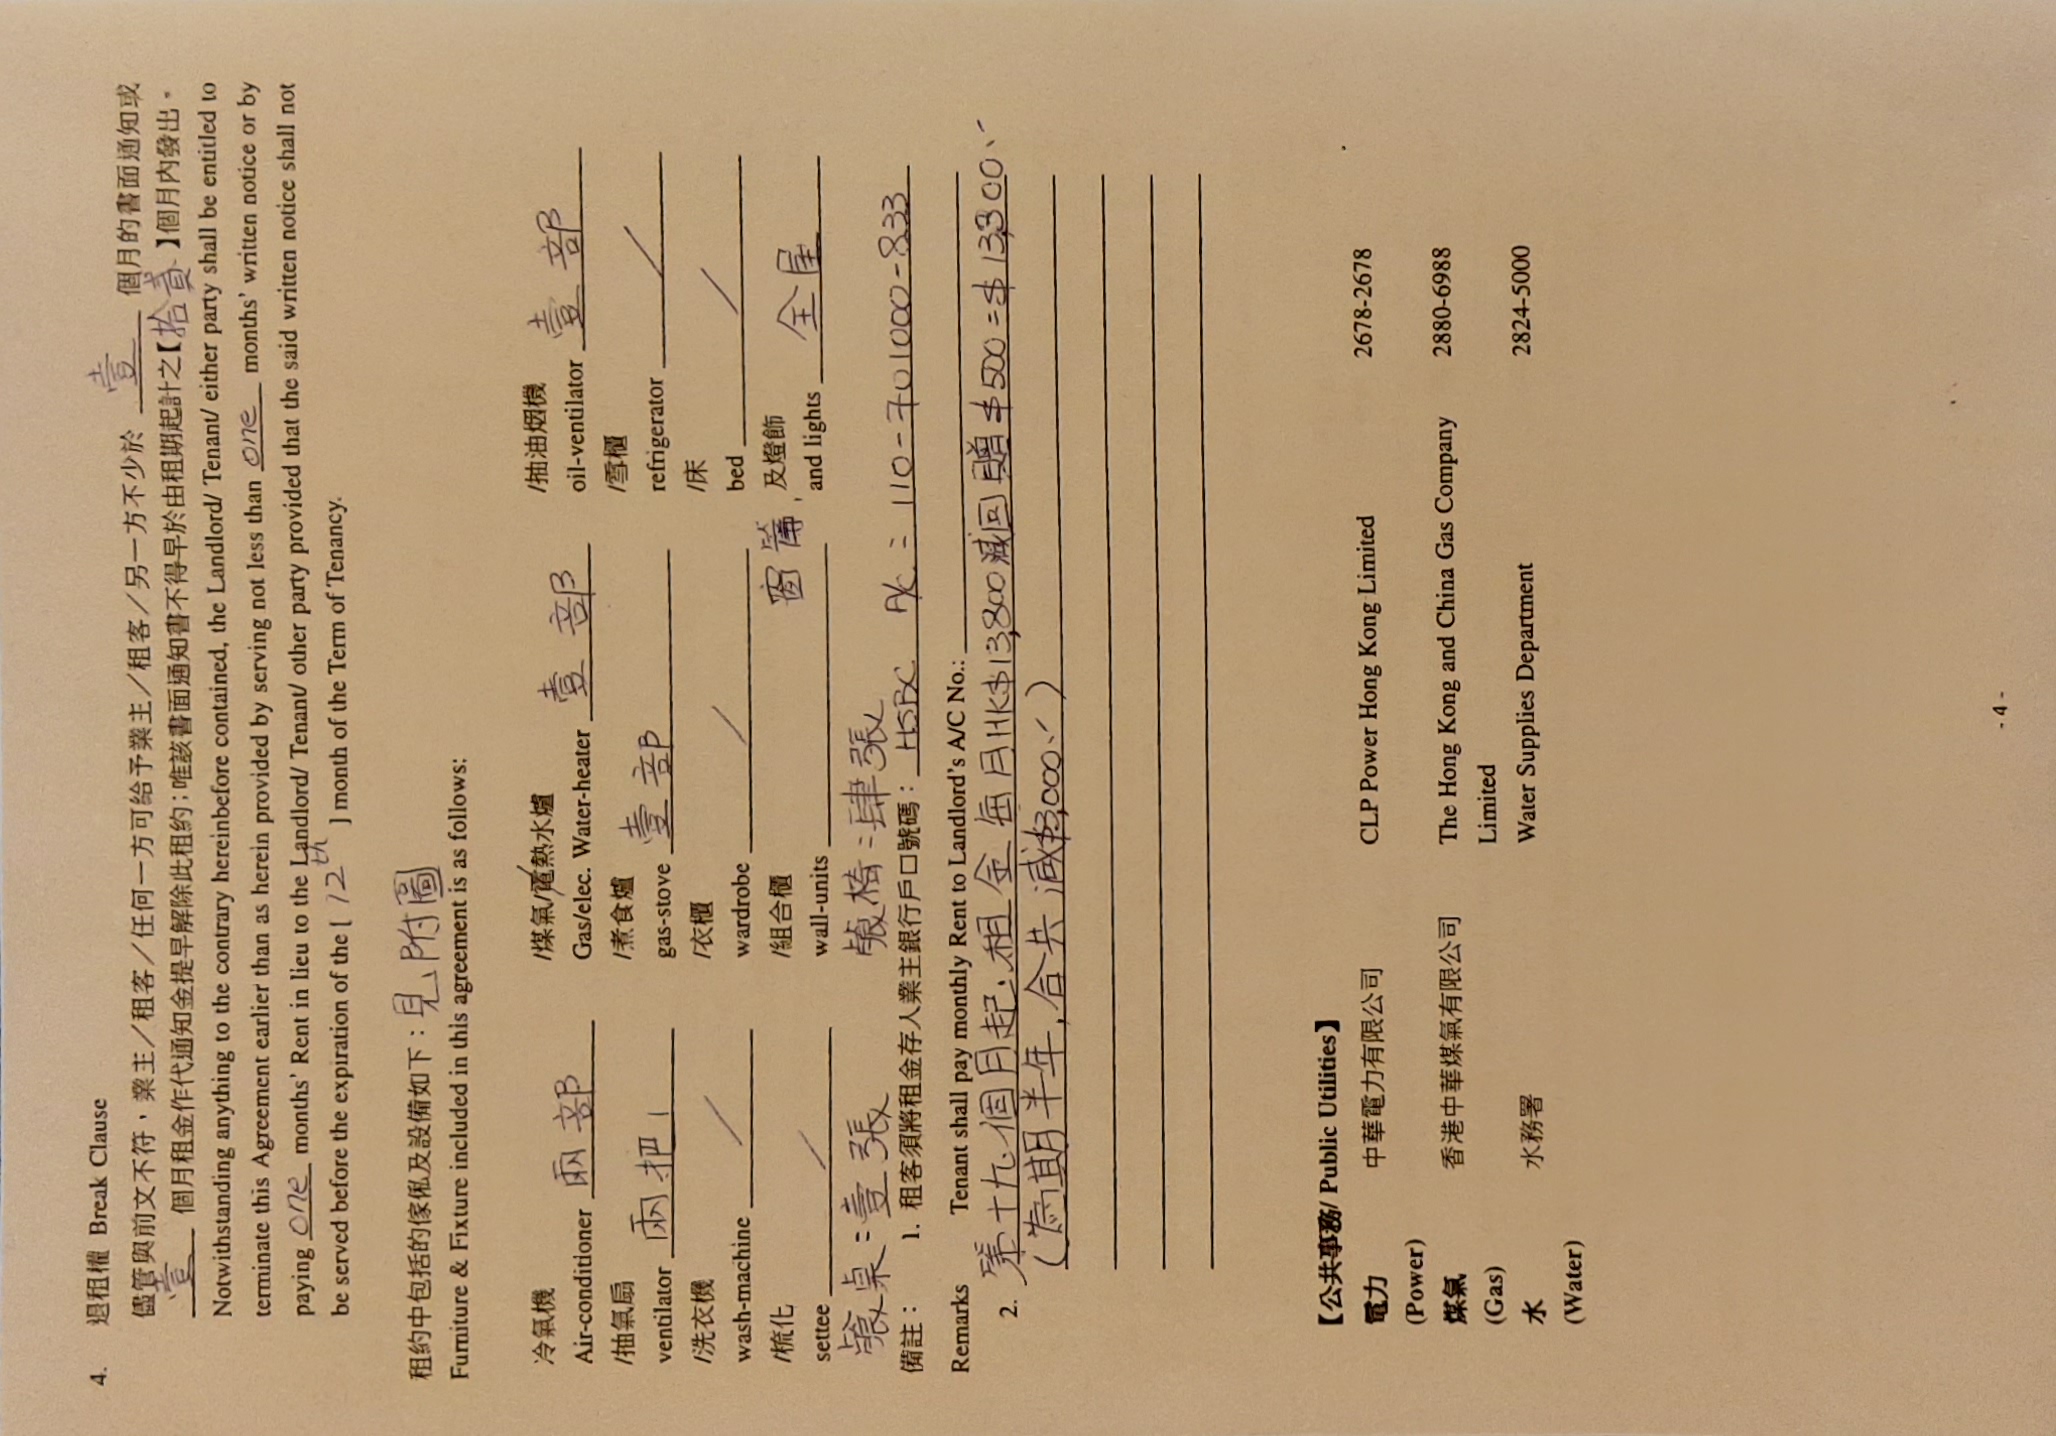 4. 退租權 Break Clause
儘管與前文不符，業主／租客／任何一方可給予業主／租客／另一方不少於 壹 個月的書面通知或
壹 個月租金作代通知金提早解除此租約；唯該書面通知書不得早於由租期起計之【拾貳】個月內發出。
Notwithstanding anything to the contrary hereinbefore contained, the Landlord/ Tenant/ either party shall be entitled to
terminate this Agreement earlier than as herein provided by serving not less than one months' written notice or by
paying one months' Rent in lieu to the Landlord/ Tenant/ other party provided that the said written notice shall not
be served before the expiration of the [ 12th ] month of the Term of Tenancy.
租約中包括的傢俬及設備如下：見附圖
Furniture & Fixture included in this agreement is as follows:
冷氣機 /煤氣/電熱水爐 /抽油烟機
Air-conditioner 兩部 Gas/elec. Water-heater 壹部 oil-ventilator 壹部
/抽氣扇 /煮食爐 /雪櫃
ventilator 兩把 gas-stove 壹部 refrigerator /
/洗衣機 /衣櫃 /床
wash-machine / wardrobe / bed /
/梳化 /組合櫃 窗簾, 及燈飾
settee / wall-units and lights 全屋
餐桌：壹張 餐椅：肆張
備註： 1. 租客須將租金存入業主銀行戶口號碼： HSBC A/C = 110-701000-833
Remarks Tenant shall pay monthly Rent to Landlord's A/C No.:
2. 第十九個月起，租金每月HK$13,800減回贈$500=$13,300.-
(為期半年,合共減$3,000.-)
【公共事務/ Public Utilities】
電力 中華電力有限公司 CLP Power Hong Kong Limited 2678-2678
(Power)
煤氣 香港中華煤氣有限公司 The Hong Kong and China Gas Company 2880-6988
(Gas) Limited
水 水務署 Water Supplies Department 2824-5000
(Water)
- 4 -